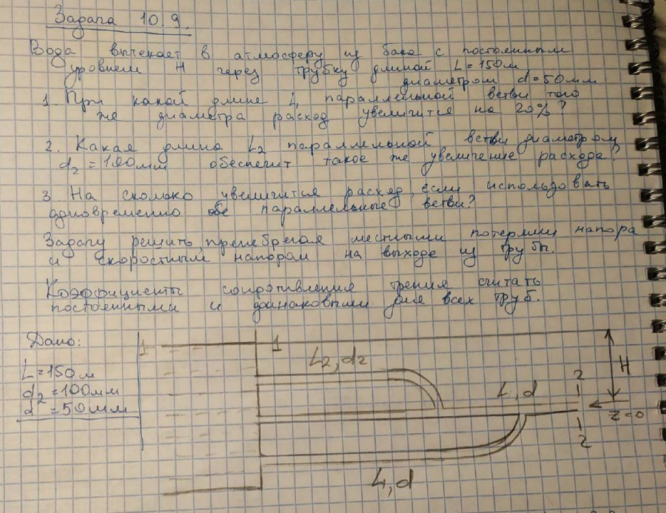 Задача 10.9.
Вода вытекает в атмосферу из бака с постоянным
уровнем H через трубку длиной L=150м
диаметром d=50мм
1. При какой длине L₁ параллельной ветви того
же диаметра расход увеличится на 20%?
2. Какая длина L₂ параллельной ветви диаметром
d₂=100мм обеспечит такое же увеличение расхода?
3. На сколько увеличится расход, если использовать
одновременно обе параллельные ветви?
Задачу решить, пренебрегая местными потерями напора
и скоростным напором на выходе из трубы.
Коэффициенты сопротивления трения считать
постоянными и одинаковыми для всех труб.
Дано:
L=150м
d₂=100мм
d=50мм
1
1
L₂, d₂
L, d
H
2
z=0
2
L₁, d